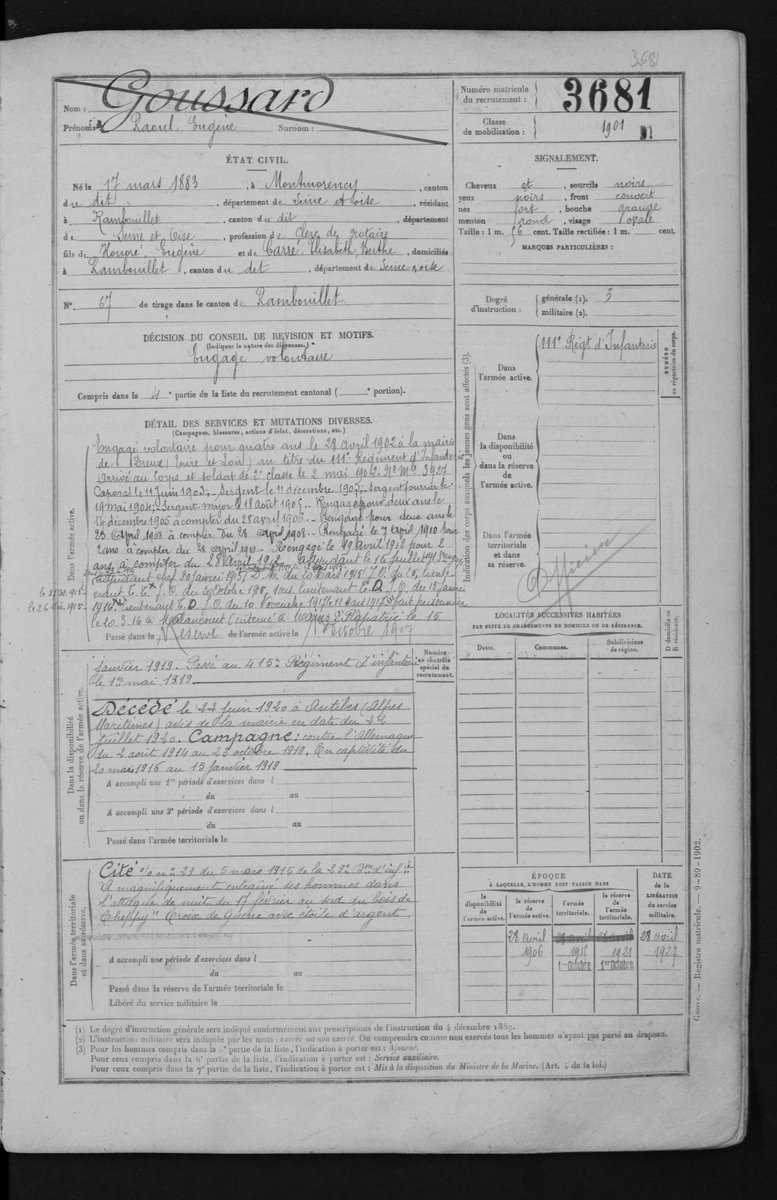 3681
Nom : Goussard
Prénoms : Raoul, Eugène Surnom :
Numéro matricule du recrutement : 3681
Classe de mobilisation : 1901
ÉTAT CIVIL.
Né le 17 mars 1883, à Montmorency, canton
du dit, département de Seine et oise, résidant
à Rambouillet, canton du dit, département
de Seine et Oise, profession de Clerc de notaire
fils de Honoré, Eugène et de Carré, Elisabeth, Berthe, domiciliés
à Rambouillet, canton du dit, département de Seine & oise
N° 67 de tirage dans le canton de Rambouillet
SIGNALEMENT.
Cheveux et sourcils noirs
yeux noirs, front couvert
nez fort, bouche grande
menton rond, visage ovale
Taille : 1 m. 56 cent. Taille rectifiée : 1 m. cent.
MARQUES PARTICULIÈRES :
Degré d'instruction : générale (1). 3
militaire (2).
DÉCISION DU CONSEIL DE REVISION ET MOTIFS.
(Indiquer la nature des dispenses.)
Engagé volontaire
Compris dans la 4e partie de la liste du recrutement cantonal ( e portion).
DÉTAIL DES SERVICES ET MUTATIONS DIVERSES.
(Campagnes, blessures, actions d'éclat, décorations, etc.)
Dans l'armée active.
Engagé volontaire pour quatre ans le 28 avril 1902 à la mairie
de Dreux (Eure et Loir) au titre du 111e Régiment d'Infanterie
Arrivé au corps et soldat de 2e classe le 2 mai 1902. N° Mle 3927
Caporal le 11 Juin 1903. Sergent le 11 décembre 1903. Sergent fourrier le
19 mai 1904. Sergent major le 18 août 1905. Rengagé pour deux ans le
14 décembre 1905 à compter du 28 avril 1906. Rengagé pour deux ans le
23 Avril 1908 à compter du 28 Avril 1908. Rengagé le 7 Avril 1910 pour
2 ans à compter du 28 avril 1910. Rengagé le 19 Avril 1912 pour 2
ans à compter du 28 avril 1912. Adjudant le 16 juillet
Adjudant chef 30 janvier 1915
nant J.O. du 20 octobre 1915, sous lieutenant J.O. du 15 janvier
1916 Lieutenant J.O. du 10 Novembre 1917 fait prisonnier
le 20.3.16 à Malancourt Rapatrié le 15
le 25 Xt. 1915
le 26 Déc. 1915
Passé dans la Réserve de l'armée active le 1er Octobre 1907
Dans la disponibilité ou dans la réserve de l'armée active.
Janvier 1919. Passé au 415e Régiment d'infanterie
le 1er mai 1919
Numéro au contrôle spécial du recrutement.
Décédé le 22 juin 1920 à Antibes (Alpes
Maritimes) avis de la mairie en date du 22
juillet 1920. Campagne : contre l'Allemagne
du 2 août 1914 au 23 octobre 1919. En captivité du
20 mars 1916 au 15 janvier 1919
A accompli une 1re période d'exercices dans l
du au
A accompli une 2e période d'exercices dans l
du au
Passé dans l'armée territoriale le
Dans l'armée territoriale et dans sa réserve.
Cité o/ n° 21 du 5 mars 1915 de la 29e Don d'inf
"A magnifiquement entraîné ses hommes dans
l'attaque de nuit du 17 février au sud du bois de
Cheppy" Croix de Guerre avec étoile d'argent
A accompli une période d'exercices dans l
du au
Passé dans la réserve de l'armée territoriale le
Libéré du service militaire le
Indication des corps auxquels les jeunes gens sont affectés (3).
Dans l'armée active. 111e Régt d'Infanterie
NUMÉRO au répertoire du corps.
Dans la disponibilité ou dans la réserve de l'armée active.
Dans l'armée territoriale et dans sa réserve.
Officier
LOCALITÉS SUCCESSIVES HABITÉES
PAR SUITE DE CHANGEMENTS DE DOMICILE OU DE RÉSIDENCE.
Dates. Communes. Subdivisions de région. D domicile ou R résidence.
ÉPOQUE
À LAQUELLE L'HOMME DOIT PASSER DANS
DATE DE LA LIBÉRATION DU SERVICE MILITAIRE.
la disponibilité de l'armée active. la réserve de l'armée active. l'armée territoriale. la réserve de l'armée territoriale.
28 avril 28 avril 28 avril 28 avril
1906 1915 1921 1927
1er Octobre 1er Octobre
Guerre. — Registre matricule. — 9-89-1902.
(1) Le degré d'instruction générale sera indiqué conformément aux prescriptions de l'instruction du 4 décembre 1889.
(2) L'instruction militaire sera indiquée par les mots : exercé ou non exercé. On comprendra comme non exercés tous les hommes n'ayant pas passé au drapeau.
(3) Pour les hommes compris dans la 5e partie de la liste, l'indication à porter est : Ajourné.
Pour ceux compris dans la 6e partie de la liste, l'indication à porter est : Service auxiliaire.
Pour ceux compris dans la 7e partie de la liste, l'indication à porter est : Mis à la disposition du Ministre de la Marine. (Art. 4 de la loi.)